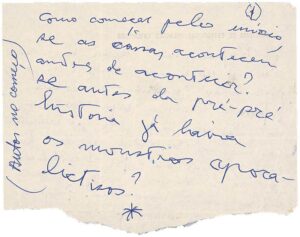 1
Como começar pelo início,
se as coisas acontecem
antes de acontecer?
se antes da pré-pré
história já havia
os monstros apoca-
líticos?
*
(Autor no começo)